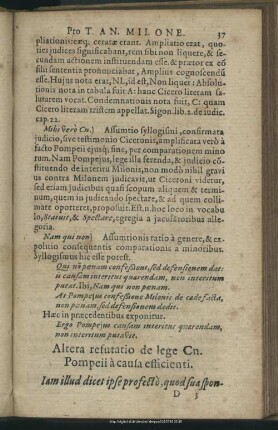 Pro T. AN. MILONE. 37
pliationisteæq, ceratæ erant. Ampliatio erat, quo-
ties judices significabant, rem sibi non liquere, & se-
cundam actionem instituendam esse. & prætor ex cō
silii sententia pronunciabat, Amplius cognoscendū
esse. Hujus nota erat, NL, id est, Non liquet: Absolu-
tionis nota in tabula fuit A: hanc Cicero literam sa-
lutarem vocat. Condemnationis nota fuit, C: quam
Cicero literam tristem appellat. Sigon. lib. 2. de judic.
cap. 22.
Mihi verò Cn.) Assumtio syllogismi, confirmata
judicio, sive testimonio Ciceronis, amplificata verò à
facto Pompeii ejusq; fine, per comparationem mino
rum. Nam Pompejus, lege illa ferenda, & judicio cō-
stituendo de interitu Milonis, non modò nihil gravi
us contra Milonem judicavit, ut Ciceroni videtur,
sed etiam judicibus quasi scopum aliquem & termi-
num, quem in judicando spectare, & ad quem collimare
oporteret, proposuit. Est. n. hoc loco in vocabu
lo, Statuit, & Spectare, egregia a jaculatoribus alle-
goria.
Nam qui non) Assumtionis ratio à genere, & ex-
positio consequentis comparationis a minoribus.
Syllogismus hic esse potest.
Qui nō pœnam confessioni, sed defensionem dat:
is causam interitus quærendam, non interitum
putat. Ibi, Nam qui non pœnam.
At Pompejus confessioni Milonis de cæde facta,
non pœnam, sed defensionem dedit.
Hæc in præcedentibus exponitur.
Ergo Pompejus causam interitus quærendam,
non interitum putavit.
Altera refutatio de lege Cn.
Pompeii à causa efficienti.
Iam illud dicet ipse profectò, quod sua spon-
D 3